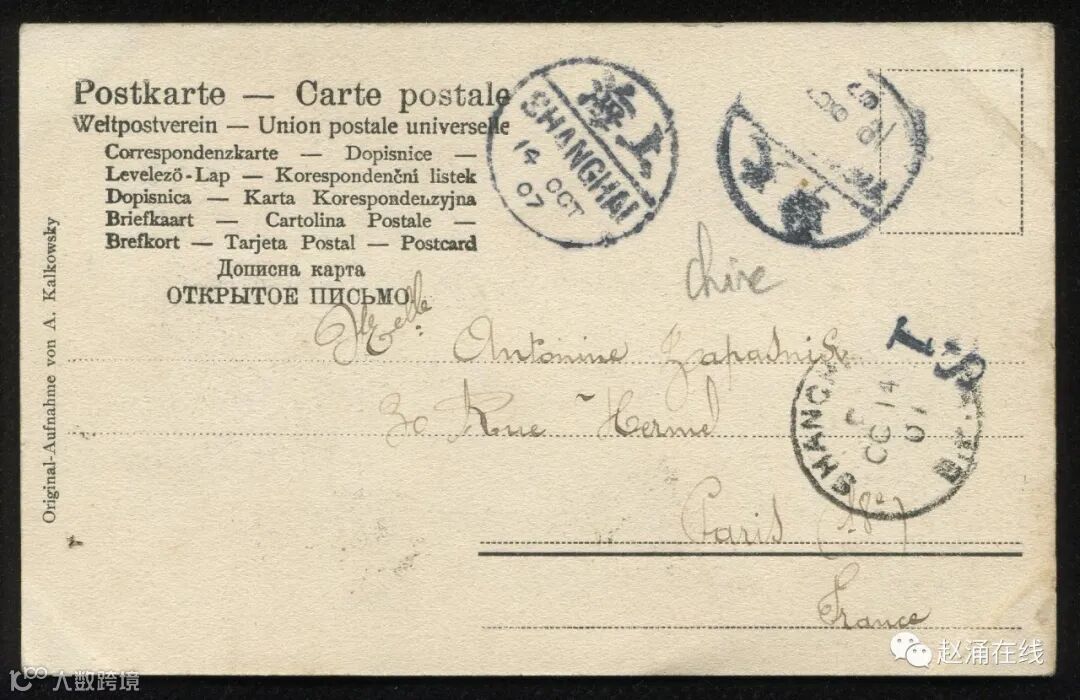 Postkarte — Carte postale
Weltpostverein — Union postale universelle
Correspondenzkarte — Dopisnice —
Levelező-Lap — Korespondenční listek
Dopisnica — Karta Korespondenzyjna
Briefkaart — Cartolina Postale —
Brefkort — Tarjeta Postal — Postcard
Дописна карта
ОТКРЫТОЕ ПИСЬМО
Original-Aufnahme von A. Kalkowsky
上海
SHANGHAI
14 OCT
07
Chine
Melle Antonine Zapasnick
30 Rue Hermel
Paris (18e)
France
I.S
SHANGH
OC 14
07
赵涌在线
大数跨境